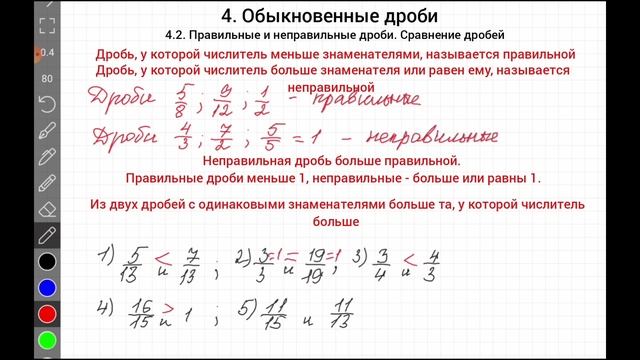 4. Обыкновенные дроби
4.2. Правильные и неправильные дроби. Сравнение дробей
Дробь, у которой числитель меньше знаменателями, называется правильной
Дробь, у которой числитель больше знаменателя или равен ему, называется
неправильной
Дроби 5/8 ; 9/12 ; 1/2 - правильные
Дроби 4/3 ; 7/2 ; 5/5 = 1 - неправильные
Неправильная дробь больше правильной.
Правильные дроби меньше 1, неправильные - больше или равны 1.
Из двух дробей с одинаковыми знаменателями больше та, у которой числитель
больше
1) 5/13 < и 7/13 ; 2) 3/3 =1 = и 19/19 =1 ; 3) 3/4 < и 4/3
4) 16/15 > и 1 ; 5) 11/15 и 11/13
0.4
80